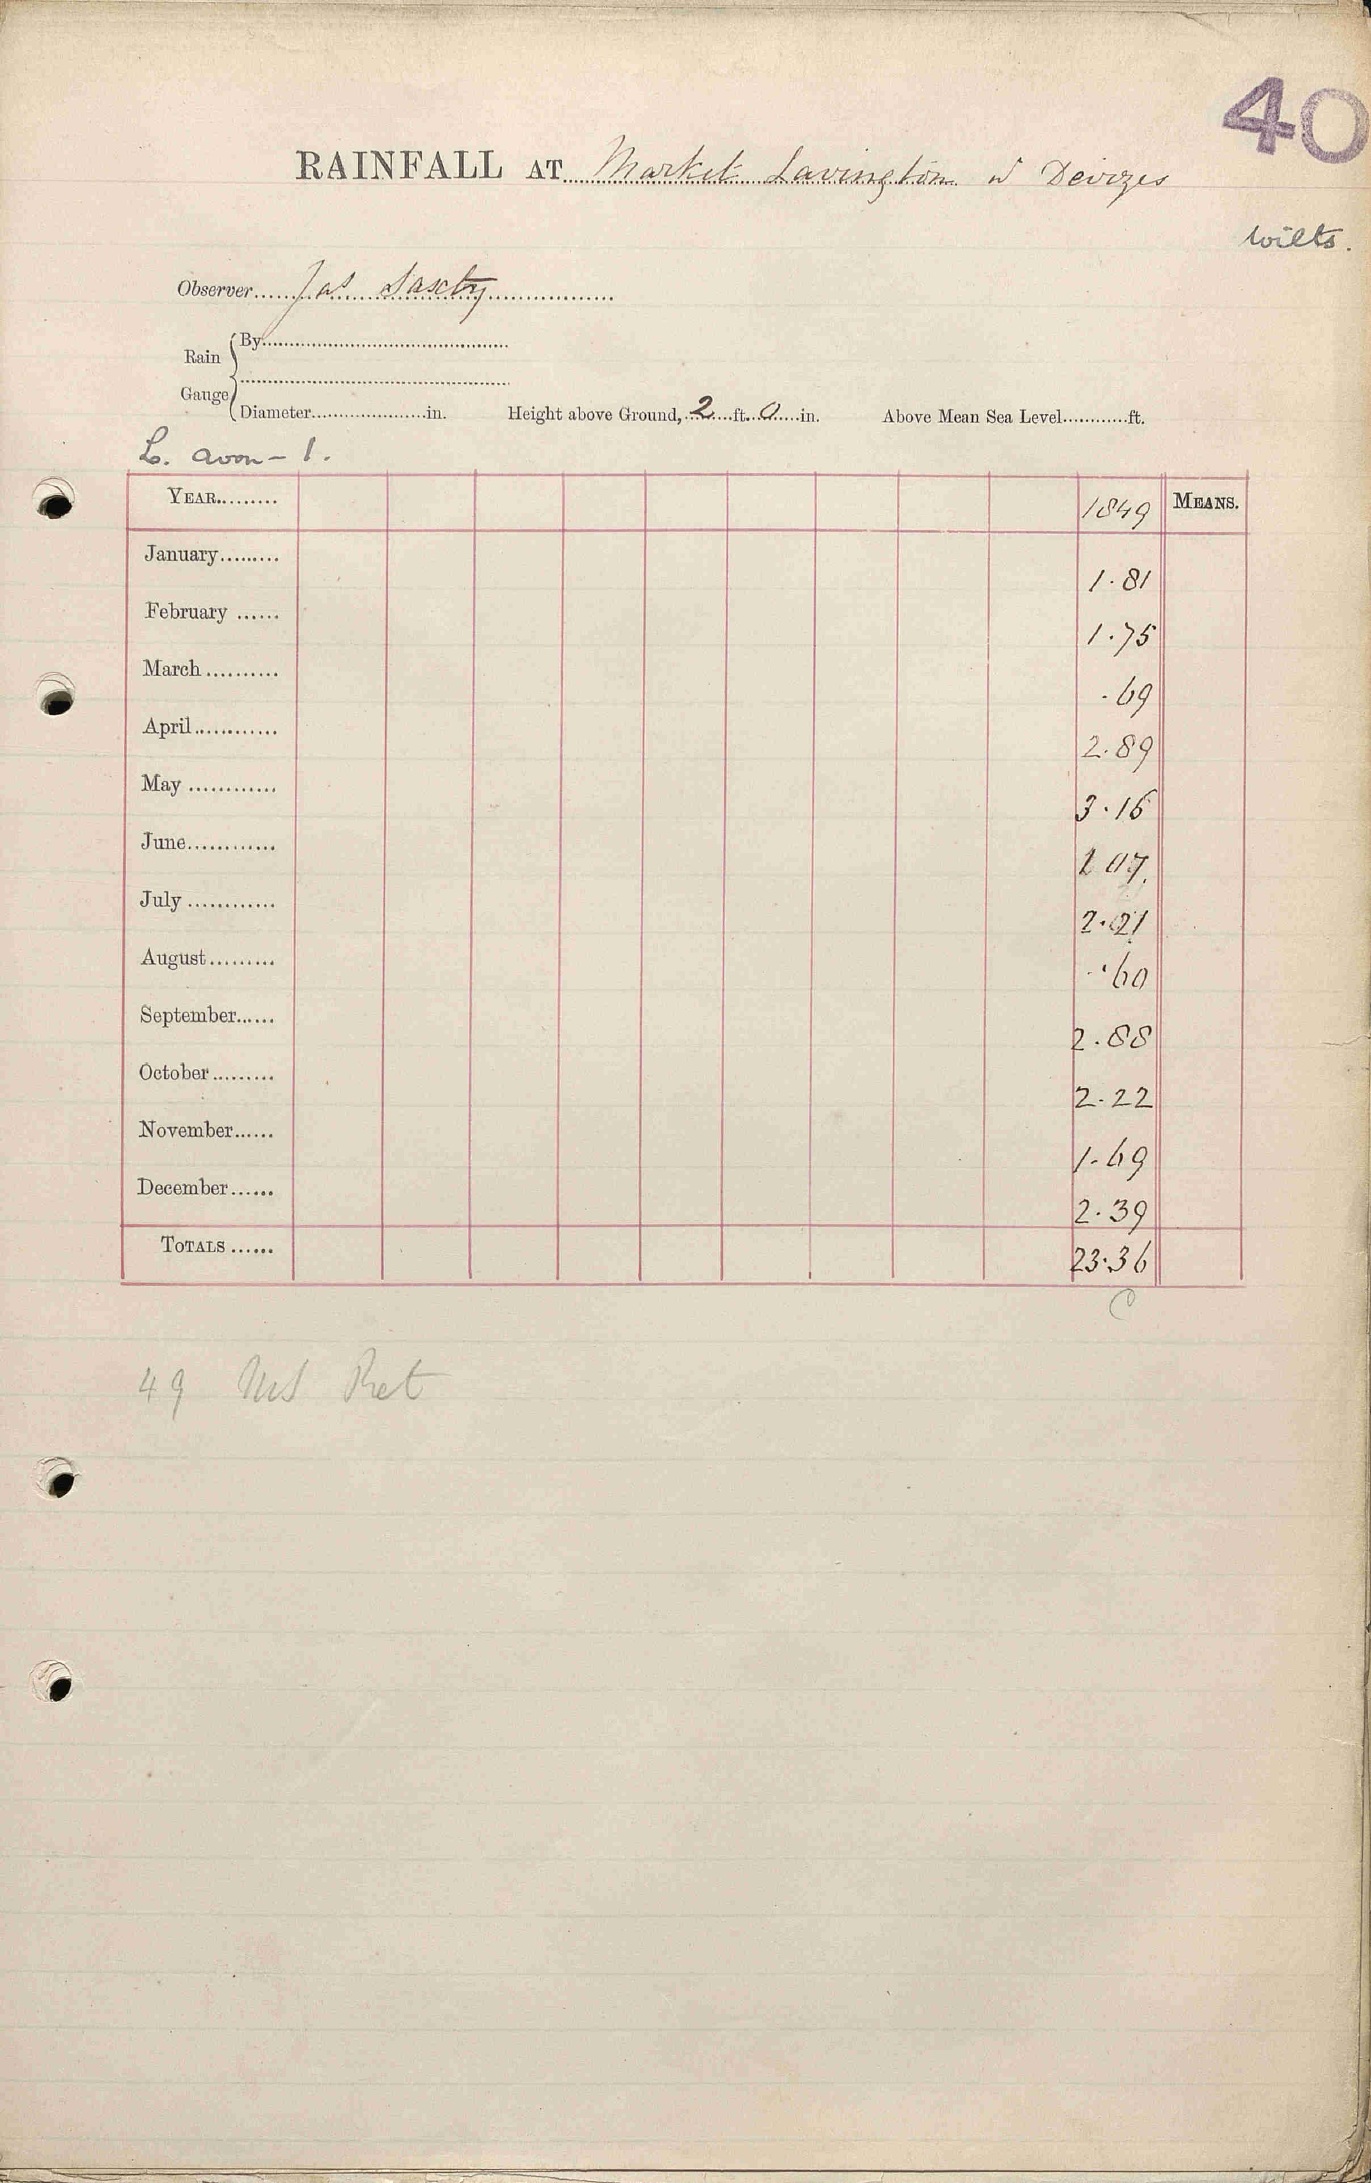 40
RAINFALL AT Market Lavington N Devizes
Wilts.
Observer Jas Saxty
Rain Gauge
By
Diameter in. Height above Ground, 2 ft. 0 in. Above Mean Sea Level ft.
L. Avon - 1.
YEAR 1849 MEANS.
January 1.81
February 1.75
March .69
April 2.89
May 3.16
June 1 07
July 2.21
August .60
September 2.88
October 2.22
November 1.69
December 2.39
TOTALS 23.36
C
49 MS Ret